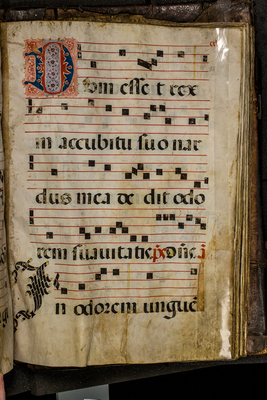 Dum esse t rex
in accubitu suo nar
dus mea de dit odo
rem suauitatis
In odorem unguē